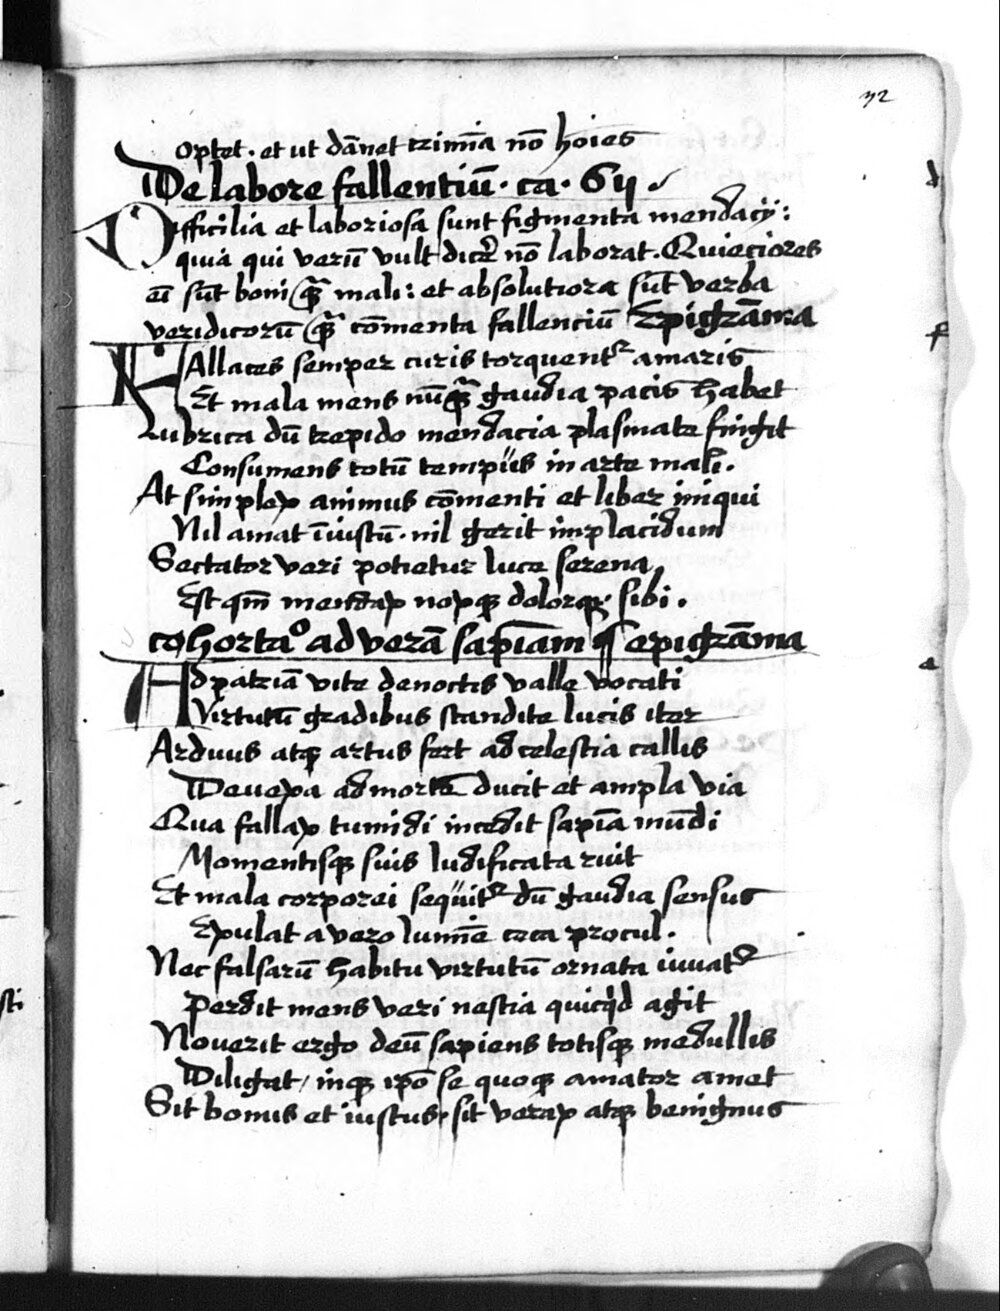 72
optet · et ut dānet crimīa nō hoīes
De labore fallentiū · ca · 6ij
Difficilia et laboriosa sunt figmenta mendacij:
quia qui verū vult dicē nō laborat. Quieciores
eī sūt boni q̄ mali: et absolutiora sūt verba
veridicorū q̄ cōmenta fallenciū Epigrāma
FAllaces semper curis torquentr amaris
Et mala mens nūq̄ gaudia pacis habet
Lubrica dū trepido mendacia plasmate fingit
Consumens totū tempus in arte mali.
At simplex animus cōmenti et liber iniqui
Nil amat īiustū · nil gerit implacidum
Sectator veri potietur luce serena
Est qm̄ mendax noxq; dolorq; sibi.
cohortao ad verā sapīam ¶ epigrāma
AD patriā vite de noctis valle vocati
Virtutū gradibus scandite lucis iter
Arduus atq; artus fert ad celestia callis
Devexa ad mortē ducit et ampla via
Qua fallax tumidi incedit sapīa mūdi
Momentisq; suis ludificata ruit
Et mala corporei sequitr dū gaudia sensus
Expulat a vero lumīe ceca procul.
Nec falsarū habitu virtutū ornata iuvatr
Perdit mens veri nescia quicq̄d agit
Noverit ergo deū sapiens totisq; medullis
Diligat / inq; ip̄o se quoq; amator amet
Sit bonus et iustus · sit verax atq; benignus
d
f
a
sti